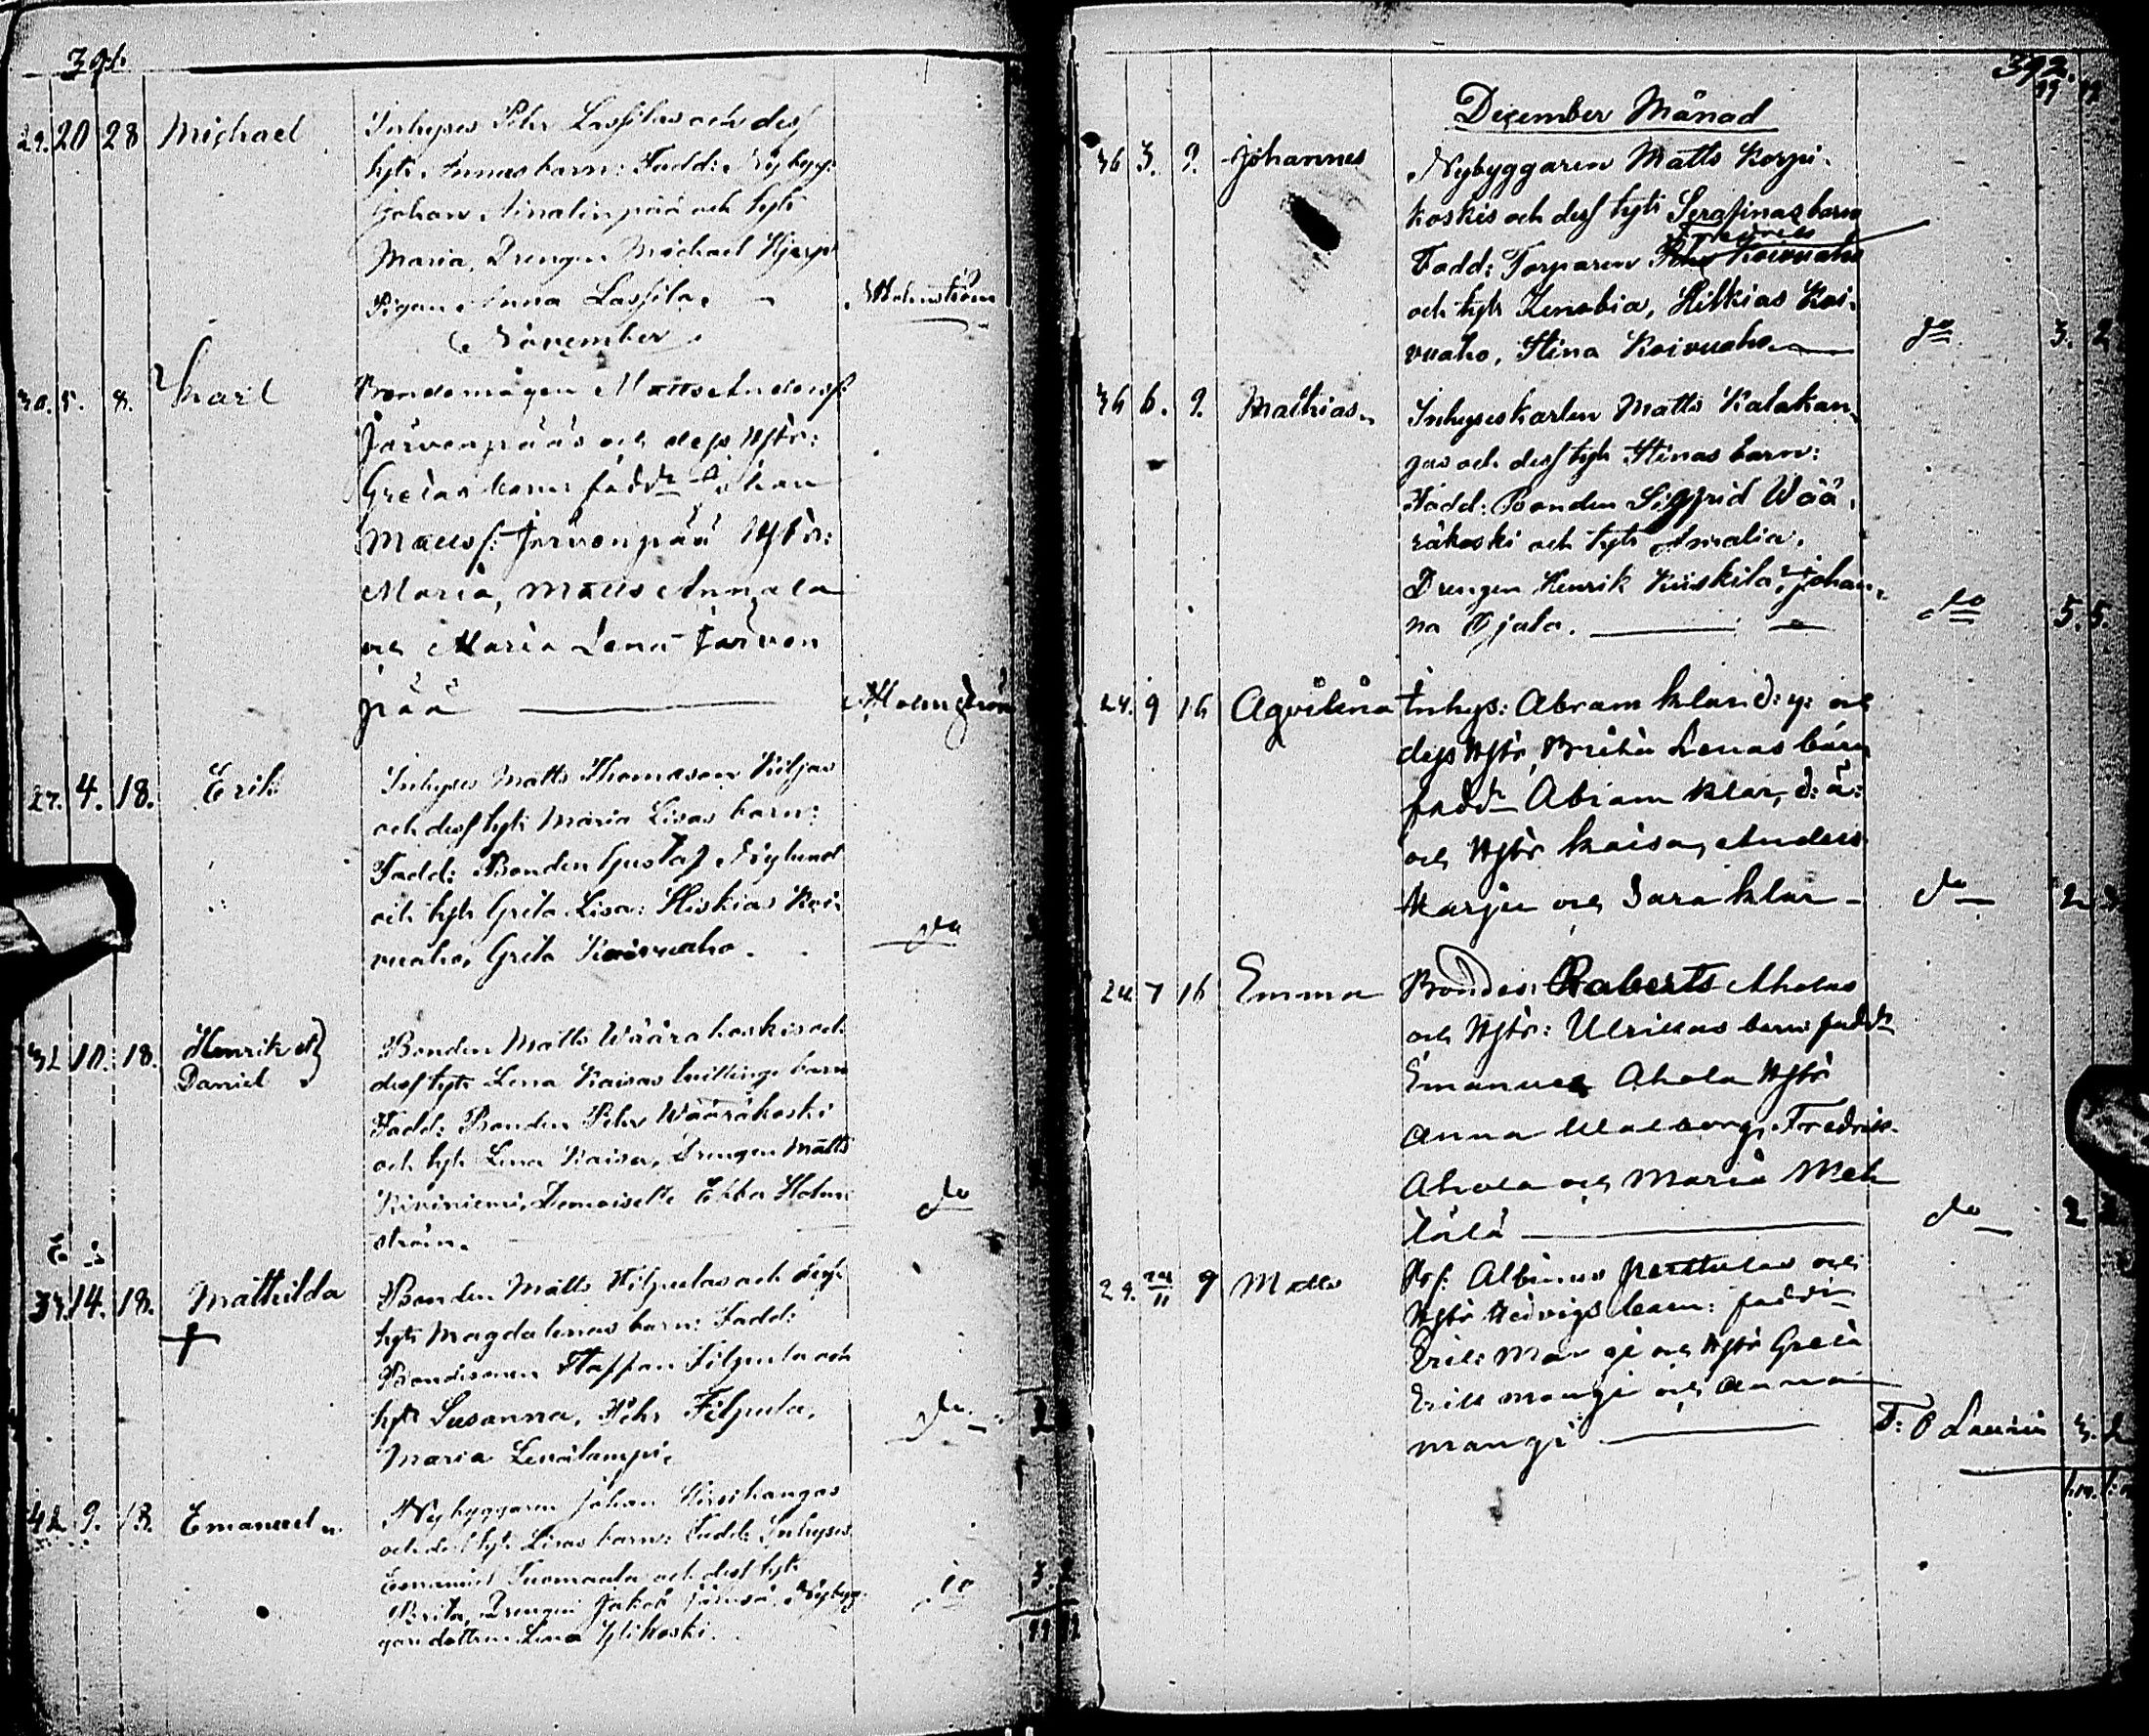 391.
29. 20 28 Michael Inhyses Pehr Lassilas och dess
hyst: Annas barn: Fadd: Nybygg:
Johan Ainalinpää och hyst
Maria, Drengen Michael Hjerp
Pigan Anna Lassila. Holmström
November
30. 5. 8. Karl Bondemågen Matts Anderss:
Järvenpääs och dess Hstr:
Gretas barn fadd: Johan
Mattss: Järvenpää Hstr:
Maria, Matts Annala
och Maria Lena Järven
pää Holmström
27. 4. 18. Erik Inhyses Matts Thomasson Kiljas
och dess hyst: Maria Lisas barn:
Fadd: Bonden Gustaf Nylund
och hyst Greta Lisa: Hiskias Koi-
vuaho, Greta Koivuaho. do
32 10. 18. Henrik et Daniel Bonden Matts Wäärakoskis och
dess hyst Lena Kaisas tvillinge barn
Fadd: Bonden Pehr Wääräkoski
och hyst Lena Kaisa, Drengen Matts
Kiviniemi, Demoiselle Ebba Holm-
ström. do
14. 18. Mathilda Bonden Matts Filpulas och dess
hyst Magdalenas barn: Fadd:
Bondesonen Staffan Filpula och
hyst Susanna, Pehr Filpula,
Maria Levälampi. do 2
42 9. 18. Emanuel Nybyggaren Johan Hirsikangas
och dess hyst Lisas barn: Fadd: Inhyses
Emanuel Tuomaala och dess hyst
Brita, Drengen Jakob Jämsä Nybyg-
garedottren Lena Ylikoski. do 3.
11 12
392.
11 12
December Månad
36 3. 9. Johannes Nybyggaren Matts Korpi-
koskis och dess hyst Serafinas barn
Fredrik
Fadd: Torparen Pehr Koivuaho
och hyst Zenobia, Hilkias Koi-
vuaho, Stina Koivuaho do 3. 2
36 6. 9. Mathias Inhyseskarlen Matts Kalakan-
gas och dess hyst Stinas barn:
Fadd: Bonden Sigfrid Wää-
räkoski och hyst Amalia.
Drengen Henrik Kiiskilä, Johan-
na Ojala. do 5. 5.
24. 9 16 Aqvilina Inhys: Abram Klar d: y: och
dess Hstr, Brita Lenas barn
fadd: Abram Klar, d: ä:
och Hstr Kaisa, Anders
Karju och Sara Klar do 2
24 7 16 Emma Bondes: Roberts Aholas
och Hstr: Ulrikas barn fadd:
Emanuel Ahola Hstr
Anna Walborg, Fredrik
Ahola och Maria Meh
tälä do 2 2
29. 24/11 9 Matts Albinus Perttulas och
Hstr Hedvigs barn: fadd:
Erik Mangi och Hstr Greta
Erik Mangi och Anna
Mangi F: O Laurin 3. 2